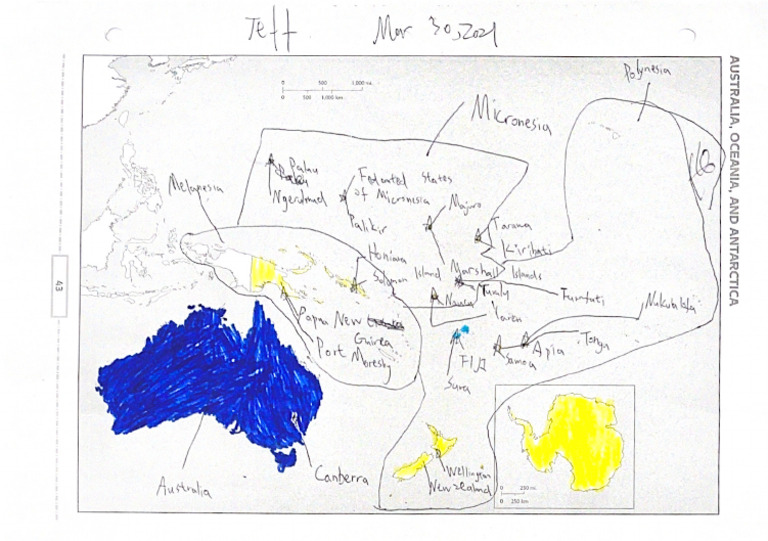 Jeff Mar 30, 2021
AUSTRALIA, OCEANIA, AND ANTARCTICA
43
0 500 1,000 mi.
0 500 1,000 km
Polynesia
Micronesia
Melanesia
Palau
Ngerulmud
Federated States
of Micronesia
Palikir
Majuro
Marshall Islands
Tarawa
Kiribati
Honiara
Solomon Island
Nauru
Yaren
Tuvalu
Funafuti
Papua New
Guinea
Port
Moresby
FIJI
Suva
Samoa
Apia
Tonga
Australia
Canberra
Wellington
New Zealand
0 250 mi.
0 250 km